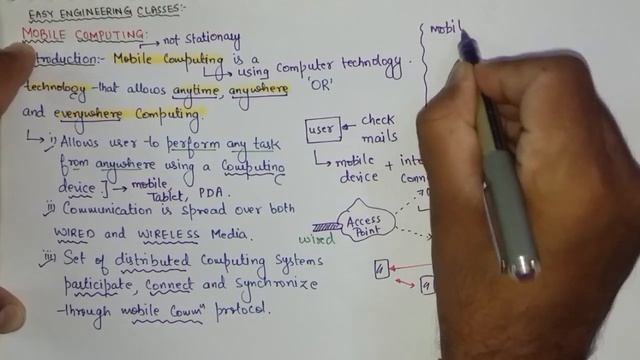 EASY ENGINEERING CLASSES:-
MOBILE COMPUTING:
not Stationary
troduction:- Mobile Computing is a
using computer technology.
technology that allows anytime, anywhere
'OR'
and everywhere Computing.
i) Allows user to perform any task
from anywhere using a Computing
device.] → mobile, Tablet, PDA.
ii) Communication is spread over both
WIRED and WIRELESS Media.
iii) Set of distributed Computing Systems
participate, Connect and Synchronize
through mobile Commⁿ protocol.
mobil
user
check
mails
mobile + inte
device conn
Access
Point
wired